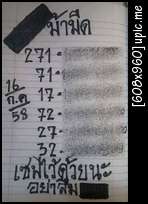 ม้ามืด
271-
71-
16
ก.ค
58
17-
72-
27-
32-
เซฟไว้ด้วยนะ
อย่าลืม
[608x960] upic.me